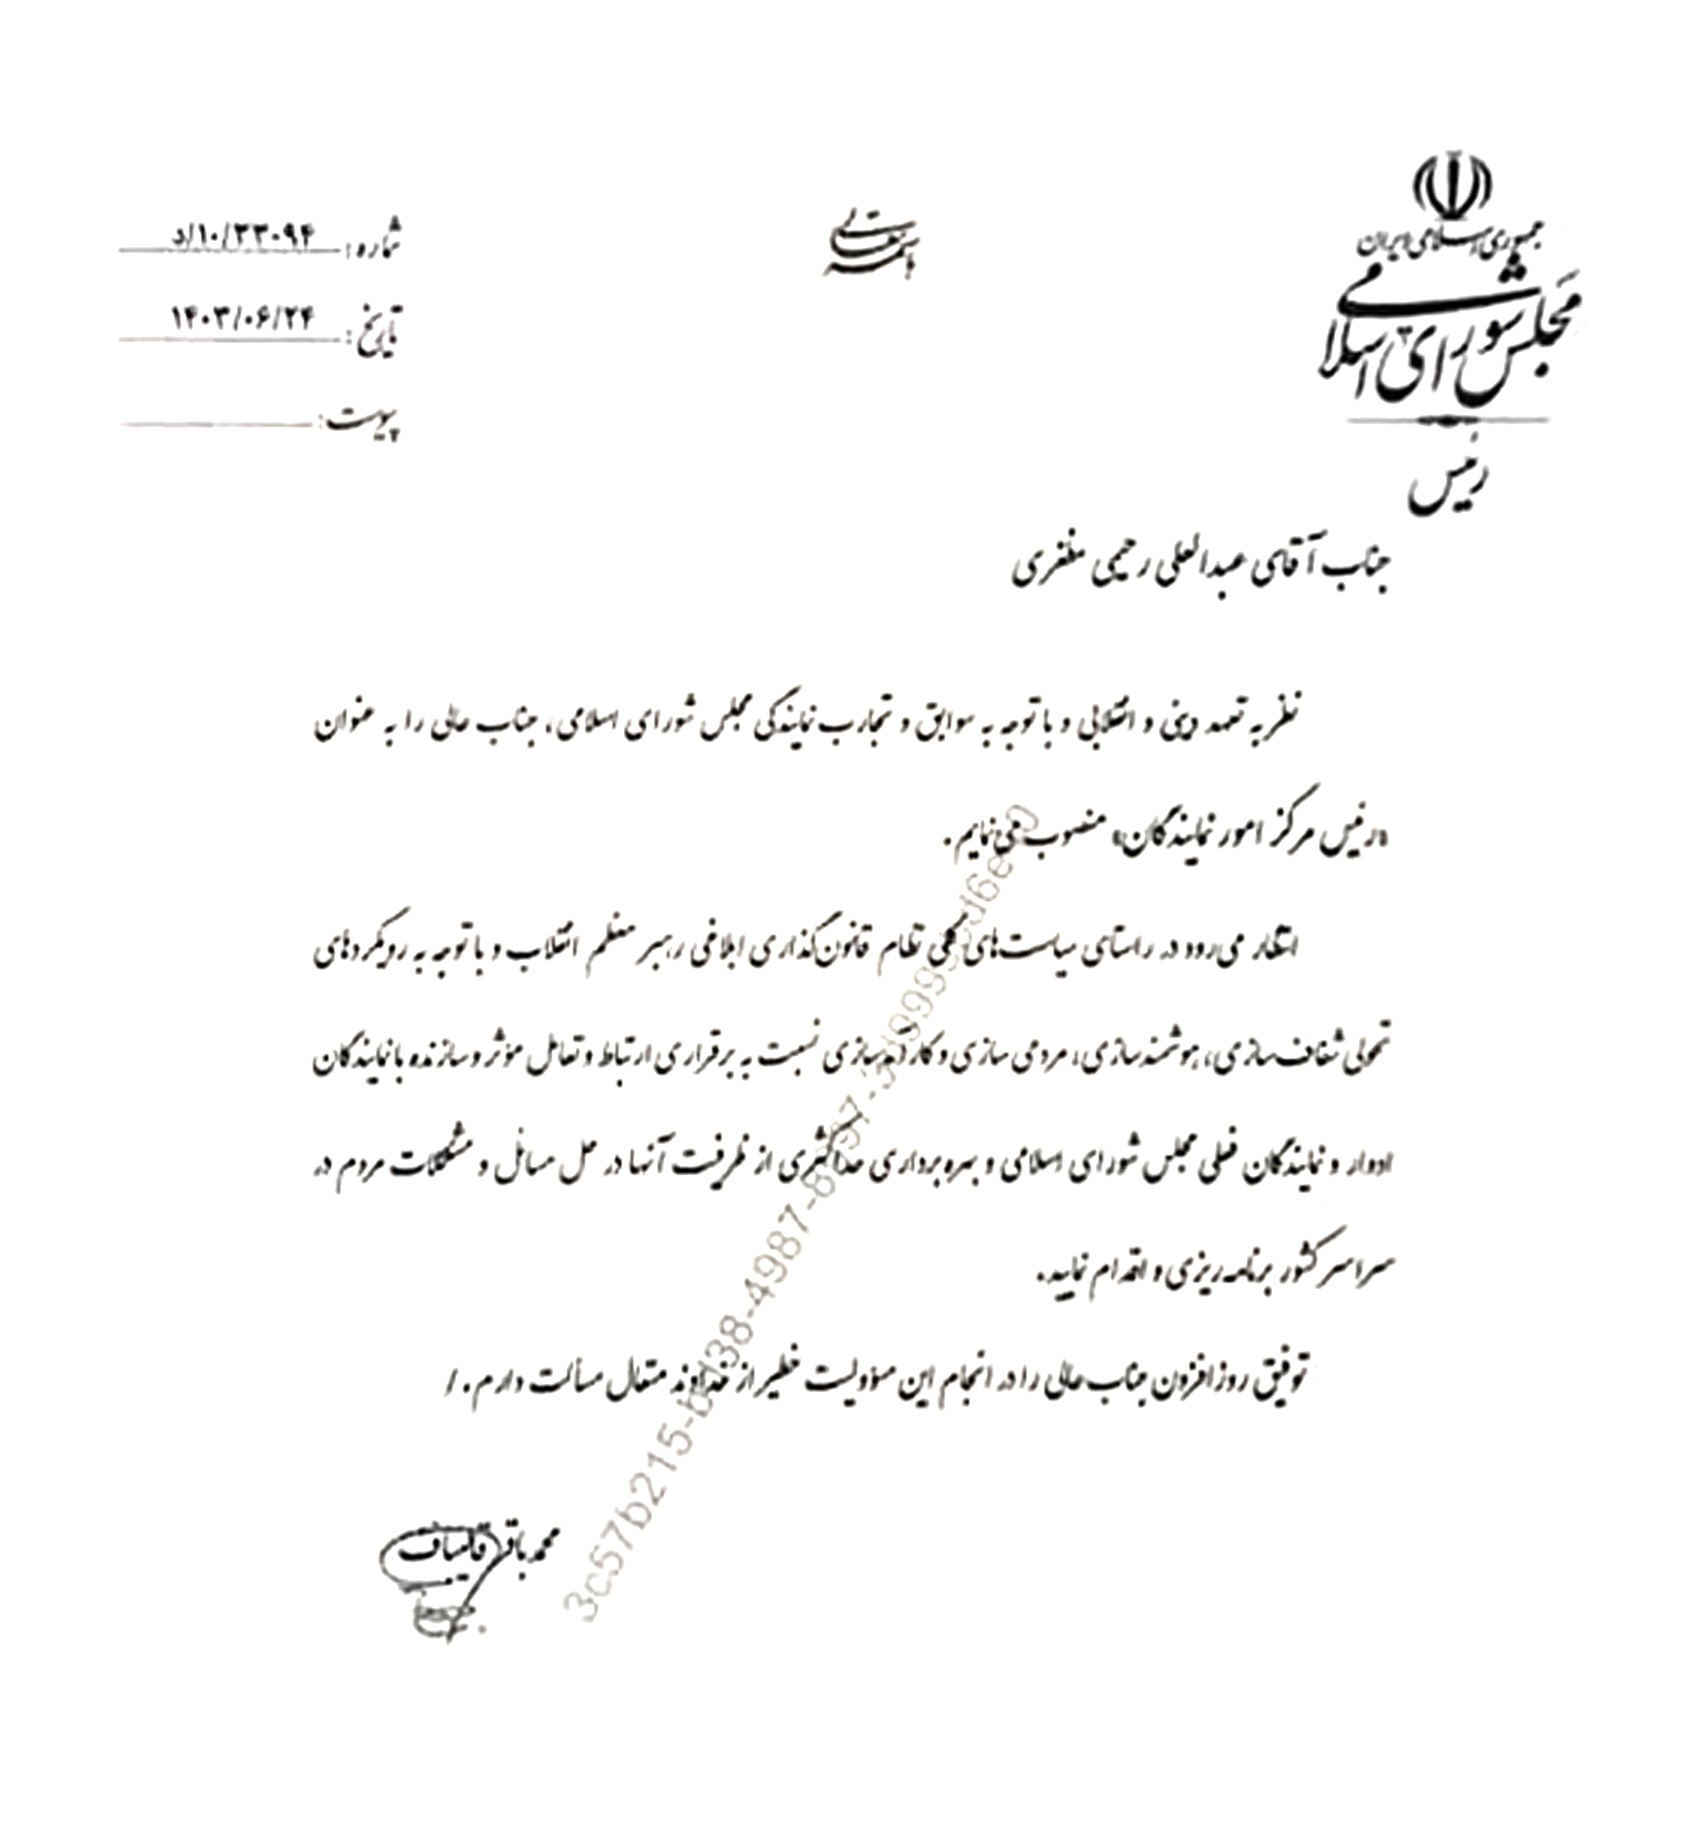 جمهوری اسلامی ایران
مجلس شورای اسلامی
رئیس
باسمه تعالی
شماره: ۳۳۰۹۴/۱۰/د
تاریخ: ۱۴۰۳/۰۶/۲۴
پیوست:
جناب آقای عبدالعلی رحیمی مظفری
نظر به تعهد دینی و انقلابی و با توجه به سوابق و تجارب نمایندگی مجلس شورای اسلامی، جناب عالی را به عنوان
«رئیس مرکز امور نمایندگان» منصوب می‌نمایم.
انتظار می‌رود در راستای سیاست‌های کلی نظام قانون‌گذاری ابلاغی رهبر معظم انقلاب و با توجه به رویکردهای
تحولی شفاف‌سازی، هوشمندسازی، مردمی سازی و کارآمدسازی نسبت به برقراری ارتباط و تعامل مؤثر و سازنده با نمایندگان
ادوار و نمایندگان فعلی مجلس شورای اسلامی و بهره‌برداری حداکثری از ظرفیت آنها در حل مسائل و مشکلات مردم در
سراسر کشور برنامه‌ریزی و اقدام نمایید.
توفیق روزافزون جناب عالی را در انجام این مسؤولیت خطیر از خداوند متعال مسألت دارم. /
محمدباقر قالیباف